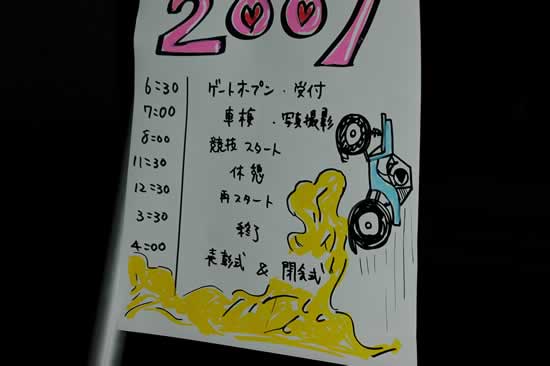 2007
6:30 ゲートオープン・受付
7:00 車検・写真撮影
8:00 競技スタート
11:30 休憩
12:30 再スタート
3:30 終了
4:00 表彰式 & 閉会式